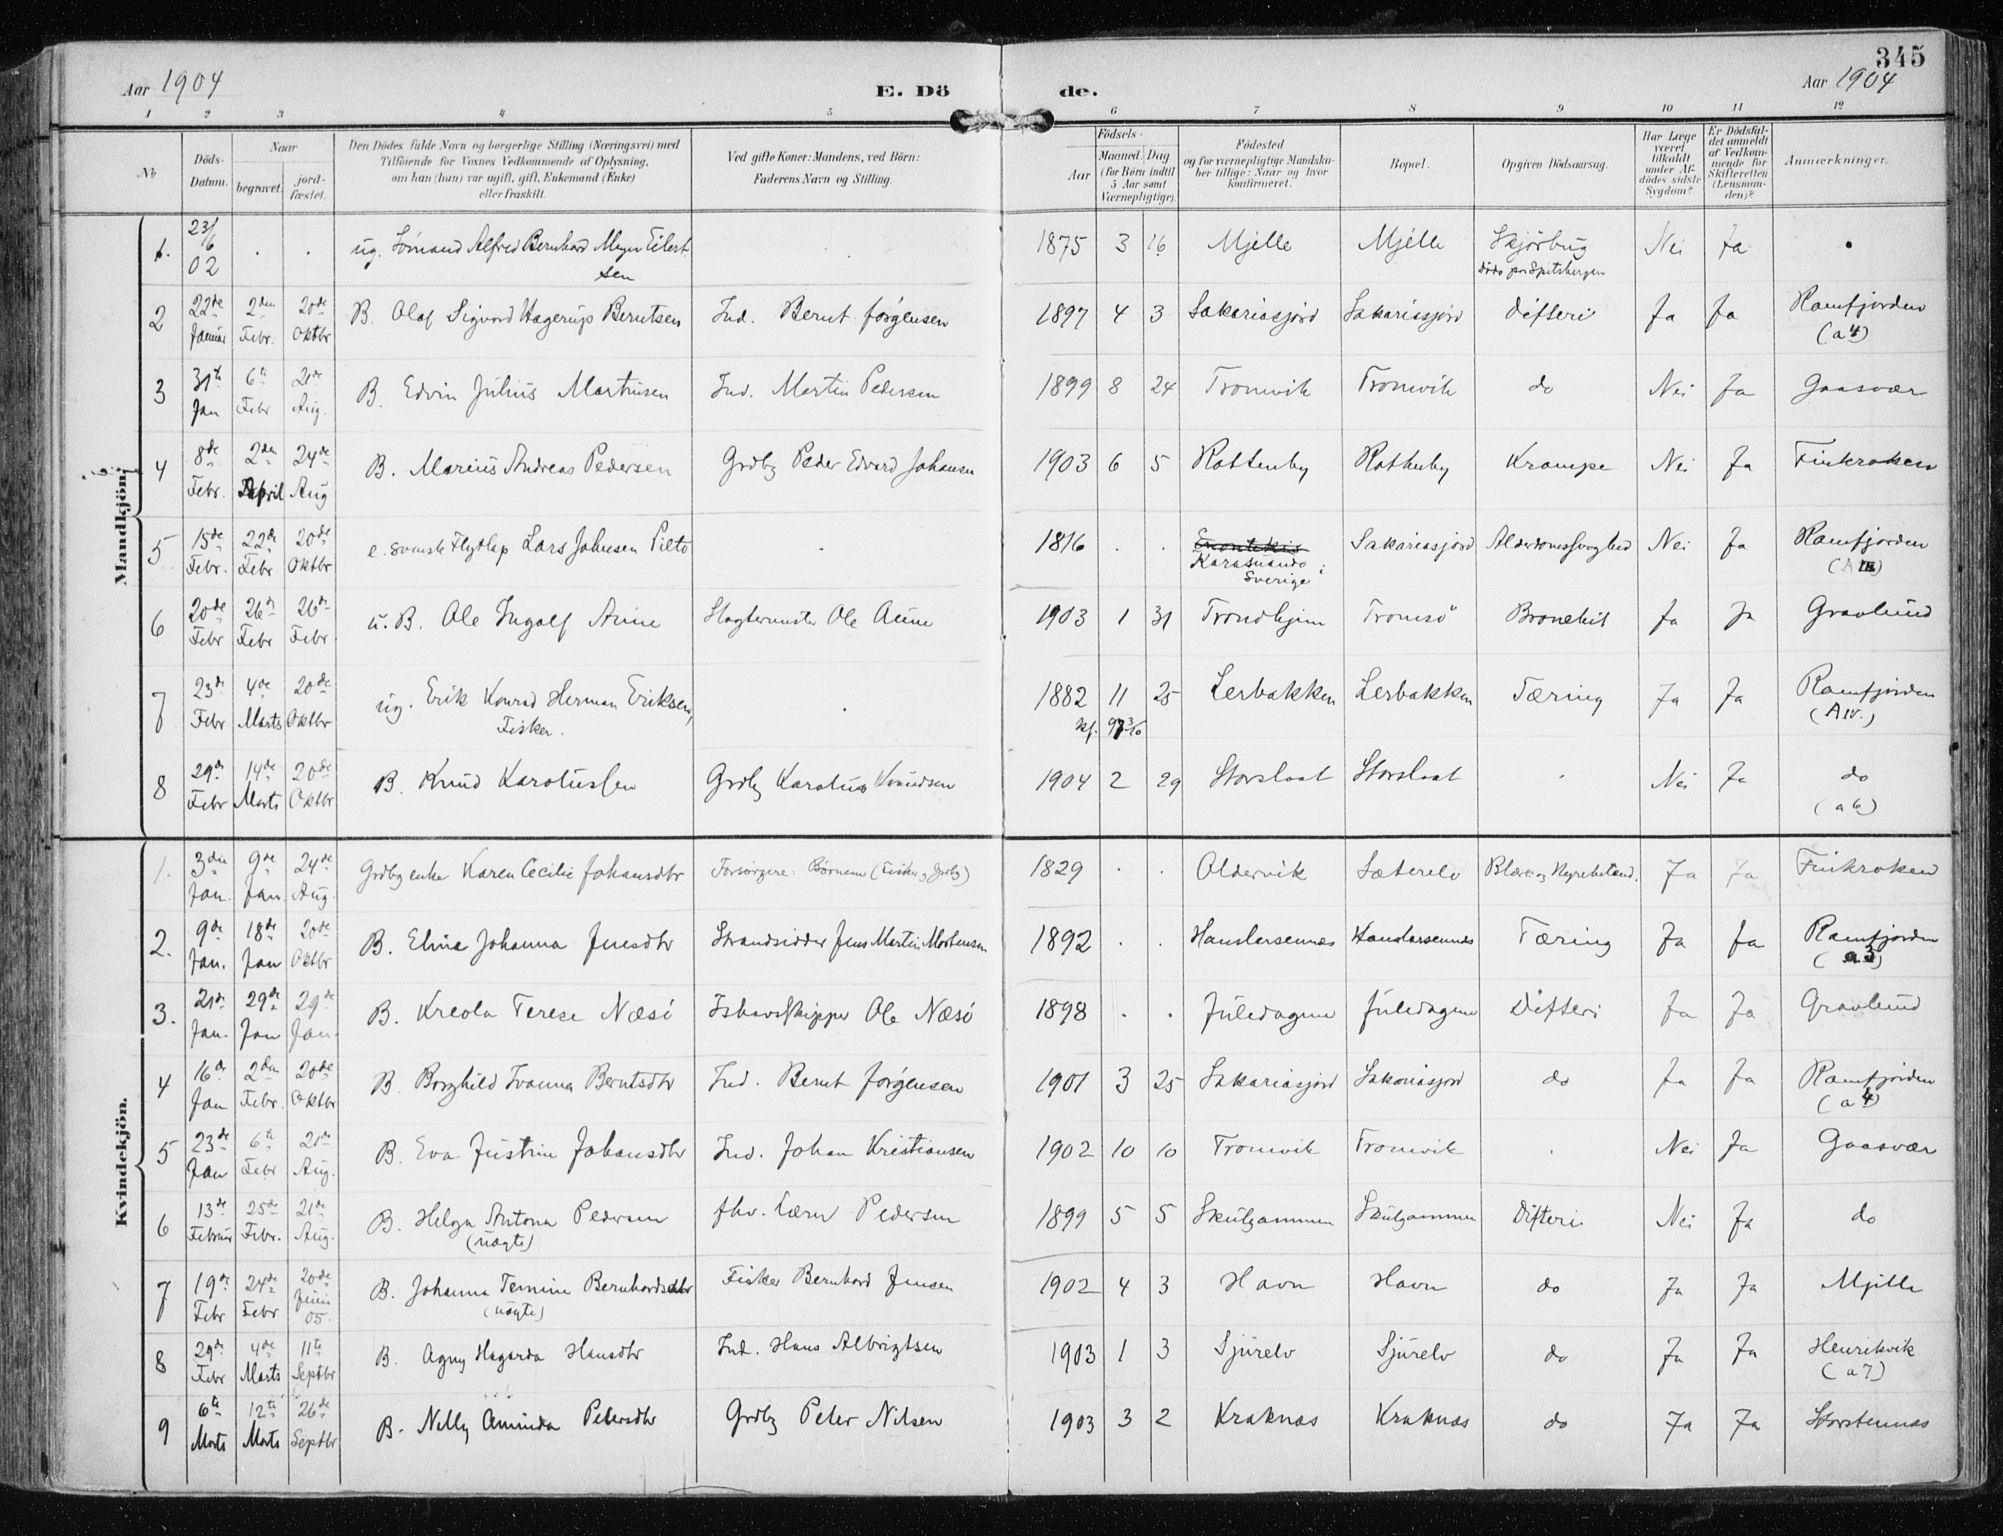 345
Aar 1904 E. Dö de. Aar 1904
1 2 3 4 5 6 7 8 9 10 11 12
No Döds-Datum. Naar begravet. jordfæstet. Den Dödes fulde Navn og borgerlige Stilling (Næringsvei) med Tilföiende for Voxnes Vedkommende af Oplysning, om han (hun) var ugift, gift, Enkemand (Enke) eller fraskilt. Ved gifte Koner: Mandens, ved Börn: Faderens Navn og Stilling. Födsels- Aar Maaned. Dag (for Börn indtil 5 Aar samt Værnepligtige). Födested og for værnepligtige Mandskaber tillige: Naar og hvor konfirmeret. Bopæl. Opgiven Dödsaarsag. Har Læge været tilkaldt under Afdödes sidste Sygdom? Er Dödsfaldet anmeldt af Vedkommende for Skifteretten (Lensmanden)? Anmærkninger.
Mandkjön:
1. 23/6 02 . . ug. Sömand Alfred Bernhard Meyer Eilertsen . 1875 3 16 Mjelle Mjelle Skjörbug Nei Ja .
döde paa Spitsbergen
2 22de Januar 2den Febr. 20de Oktbr B. Olaf Sigvard Hagerup Berntsen Ind. Bernt Jørgensen 1897 4 3 Sakariasjord Sakariasjord Difteri Ja Ja Ramfjorden
(a4)
3 31te Jan 6te Febr 21de Aug. B. Edvin Julius Martinsen Ind. Martin Pedersen 1899 8 24 Tromvik Tromvik do Nei Ja Gaasvær
4 8de Febr. 2den April 24de Aug B. Marius Andreas Pedersen Grdbg Peder Edvard Johansen 1903 6 5 Rottenby Rottenby Krampe Nei Ja Finkroken
5 15de Febr. 22de Febr 20de Oktbr e. svensk Flytlap Lars Johnsen Pilto . 1816 . . Enontekis Sakariasjord Alderdomssvaghed Nei Ja Ramfjorden
Karasuando i Sverige
6 20de Febr 26de Febr 26de Febr. u. B. Ole Ingolf Aune Slagtermester Ole Aune 1903 1 31 Trondhjem Tromsö Bronchit Ja Ja Gravlund
7 23de Febr 4de Marts 20de Oktbr ug. Erik Konrad Herman Eriksen, . 1882 11 25 Lerbakken Lerbakken Tæring Ja Ja Ramfjorden
Fisker. (A IV.)
8 29de Febr 14de Marts 20de Oktbr B. Knud Karolussen Grdbg Karolus Knudsen 1904 2 29 Storslaat Storslaat . Nei Ja do
(a6)
Kvindekjön.
1. 3die Jan. 9de Jan. 24de Aug. Grdbgenke Karen Cecilie Johansdtr Forsörgere: Börnene (Fisker og Grdbg) 1829 . . Oldervik Sæterelv Blære og Nyrebetænd. Ja Ja Finkroken
2. 9de Jan. 18de Jan 20de Oktbr B. Elina Johanna Jensdtr Strandsidder Jens Martin Mortensen 1892 . . Hanslarsennæs Hanslarsennæs Tæring Ja Ja Ramfjorden
(a3)
3. 21de Jan. 29de Jan 29de Jan. B. Kreola Terese Næsö Ishavsskipper Ole Næsö 1898 . . Juledagene Juledagene Difteri Ja Ja Gravlund
4 16de Jan 2den Febr. 20de Oktbr B Borghild Ivanna Berntsdtr Ind. Bernt Jørgensen 1901 3 25 Sakariasjord Sakariasjord do Ja Ja Ramfjorden
(a4)
5 23de Jan 6te Febr 21de Aug. B. Eva Justine Johansdtr Ind. Johan Kristiansen 1902 10 10 Tromvik Tromvik . Nei Ja Gaasvær
6 13de Februar 25de Febr. 21de Aug. B. Helga Antona Pedersen fhv. Lærer Pedersen 1899 5 5 Skulgammen Skulgammen Difteri Nei Ja do
(uægte)
7 19de Febr 24de Febr 20de Juni 05. B. Johanna Temine Bernhardsdtr Fisker Bernhard Jensen 1902 4 3 Havn Havn do Ja Ja Mjelle
(uægte)
8 29de Febr 4de Marts 11te Septbr B. Agny Hagarda Hansdtr Ind. Hans Albrigtsen 1903 1 3 Sjurelv Sjurelv do Ja Ja Henrikvik
(a7)
9 6te Marts 12te Marts 26de Septbr B. Nelly Aminda Petersdtr Grdbg Peter Nilsen 1903 3 2 Kraknæs Kraknæs do Ja Ja Storstennæs